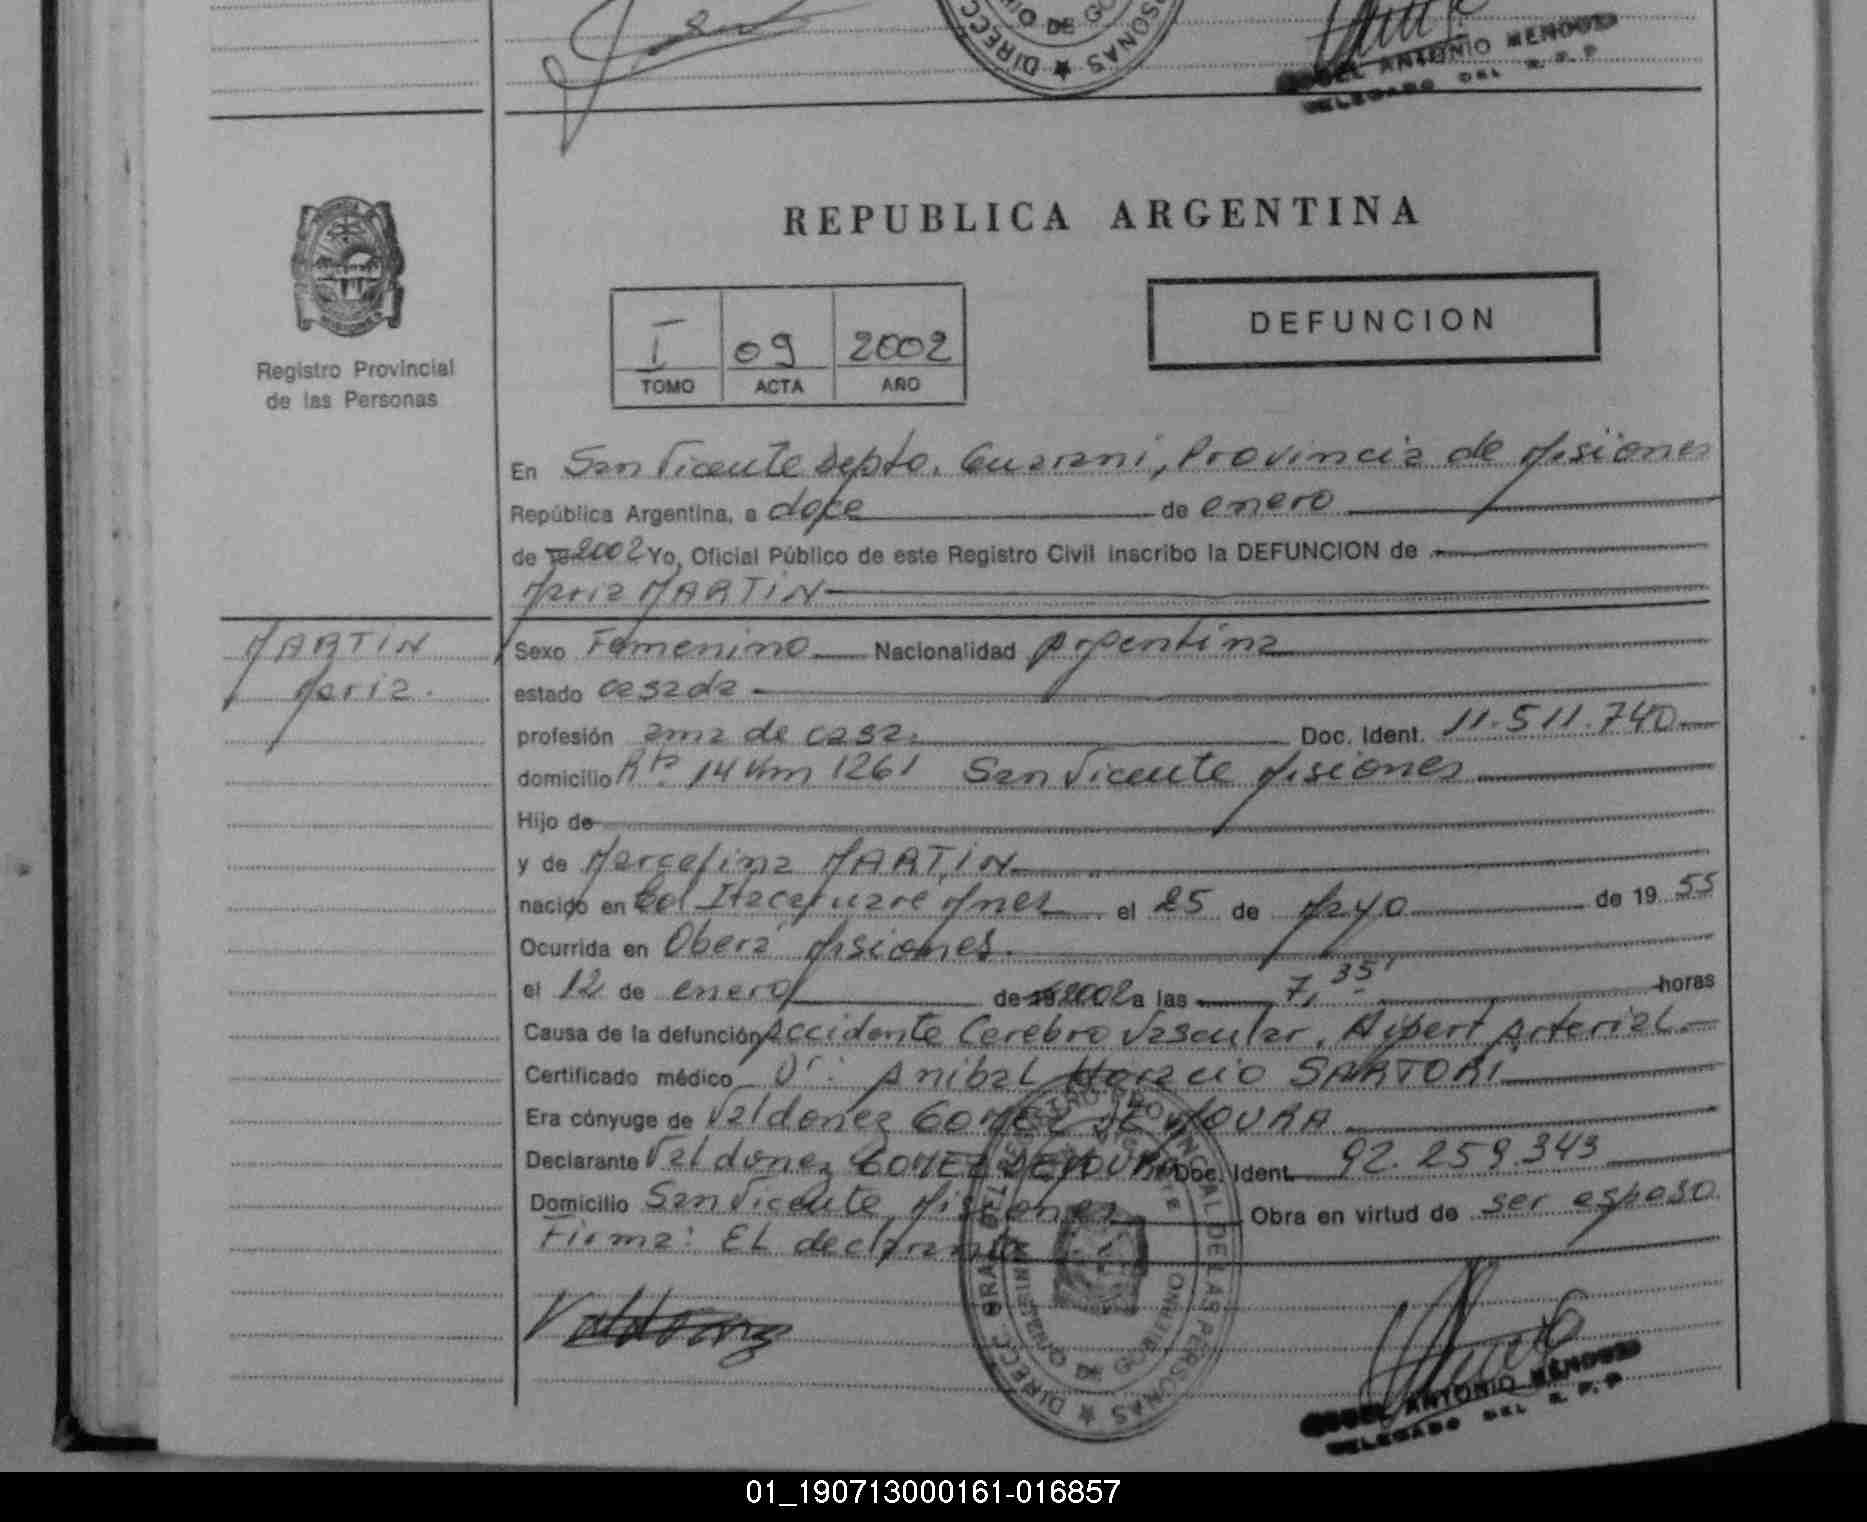 DIRECC
DE GO
SONAS
ANTONIO MENDOZA
DELEGADO DEL R. P. P
REPUBLICA ARGENTINA
I 09 2002
TOMO ACTA AÑO
DEFUNCION
Registro Provincial
de las Personas
En San Vicente Depto. Guarani, Provincia de Misiones
República Argentina, a doce de enero
de 2002 Yo, Oficial Público de este Registro Civil inscribo la DEFUNCION de
Maria MARTIN
MARTIN
Maria.
Sexo Femenino Nacionalidad Argentina
estado casada
profesión ama de casa. Doc. Ident. 11.511.740
domicilio Rta. 14 Km 1261 San Vicente Misiones
Hijo de
y de Marcelina MARTIN
nacido en Col Itacaruaré Mnes el 25 de Mayo de 19 55
Ocurrida en Oberá Misiones.
el 12 de enero de 2002 a las 7,35' horas
Causa de la defunción Accidente Cerebro Vascular, Hipert Arterial
Certificado médico Dr. Anibal Horacio SARTORI
Era cónyuge de Valdonez GOMEZ DE MOURA
Declarante Valdonez GOMEZ DE MOURA Doc. Ident. 92.259.343
Domicilio San Vicente Misiones Obra en virtud de ser esposo
Firma: El declarante
DIRECC. GRAL DEL REGISTRO PROVINCIAL DE LAS PERSONAS
MINISTERIO DE GOBIERNO
Valdonez
ANTONIO MENDOZA
DELEGADO DEL R. P. P
01_190713000161-016857